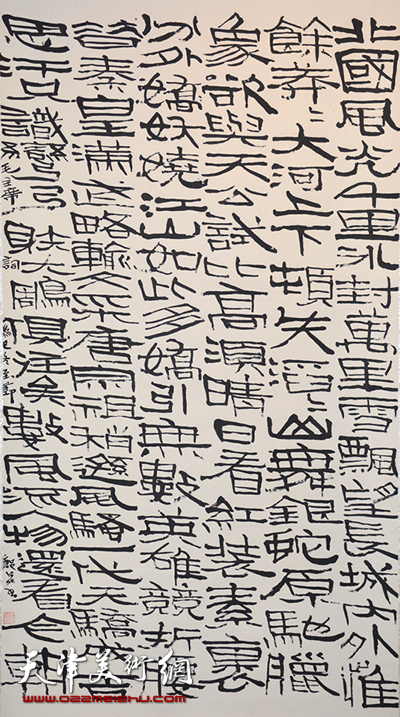 北國風光千里冰封萬里雪飄望長城内外惟
餘莽〻大河上下頓失滔〻山舞銀蛇原馳臘
象欲與天公試比高須晴日看紅裝素裹
分外嬌嬈江山如此多嬌引無數英雄競折腰
昔秦皇漢武略輸文采唐宗宋祖稍遜風騷一代天驕
思汗只識彎弓射大鵰俱往矣數風流人物還看今朝
毛主席詞
天津美術網
www.022meishu.com